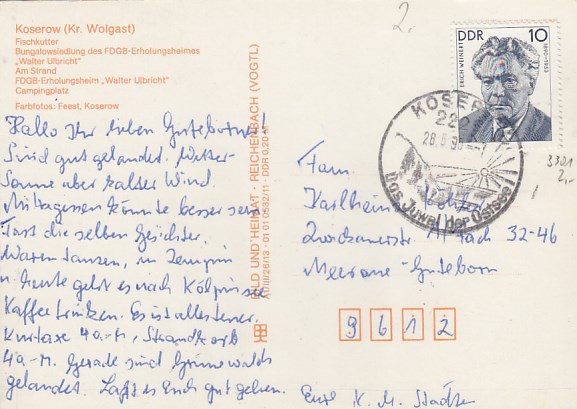 Koserow (Kr. Wolgast)
Fischkutter
Bungalowsiedlung des FDGB-Erholungsheimes
„Walter Ulbricht"
Am Strand
FDGB-Erholungsheim „Walter Ulbricht"
Campingplatz
Farbfotos: Feest, Koserow
Hallo Ihr lieben Guteborner!
Sind gut gelandet. Wetter
Sonne aber kalter Wind.
Mittagessen könnte besser sein
Fast die selben Gesichter.
Waren tanzen, in Zempin
u. heute geht es nach Kölpinsee
Kaffee trinken. Es ist alles teuer.
Kurtaxe 4.-M, Strandkorb
4.-M. Gerade sind Grünewalds
gelandet. Laßt es Euch gut gehen.
Eure K. M.
BILD UND HEIMAT · REICHENBACH (VOGTL)
A1/III/26/13 01 01 0532/11 DDR 0,20 M
2,
DDR 10
ERICH WEINERT 1890-1953
KOSEROW
222
28.
Das Juwel der Ostsee
3301
2,-
Fam.
Karlheinz
Zwickauerstr. 32-46
Meerane-Guteborn
9612